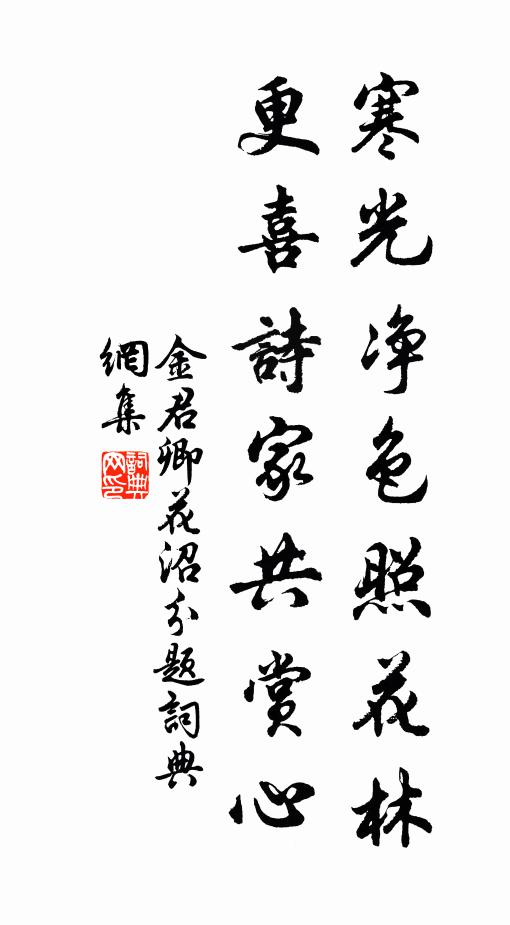 寒光净色照花林
更喜詩家共賞心
金君卿花沼分题詞典
網集
詞典网印